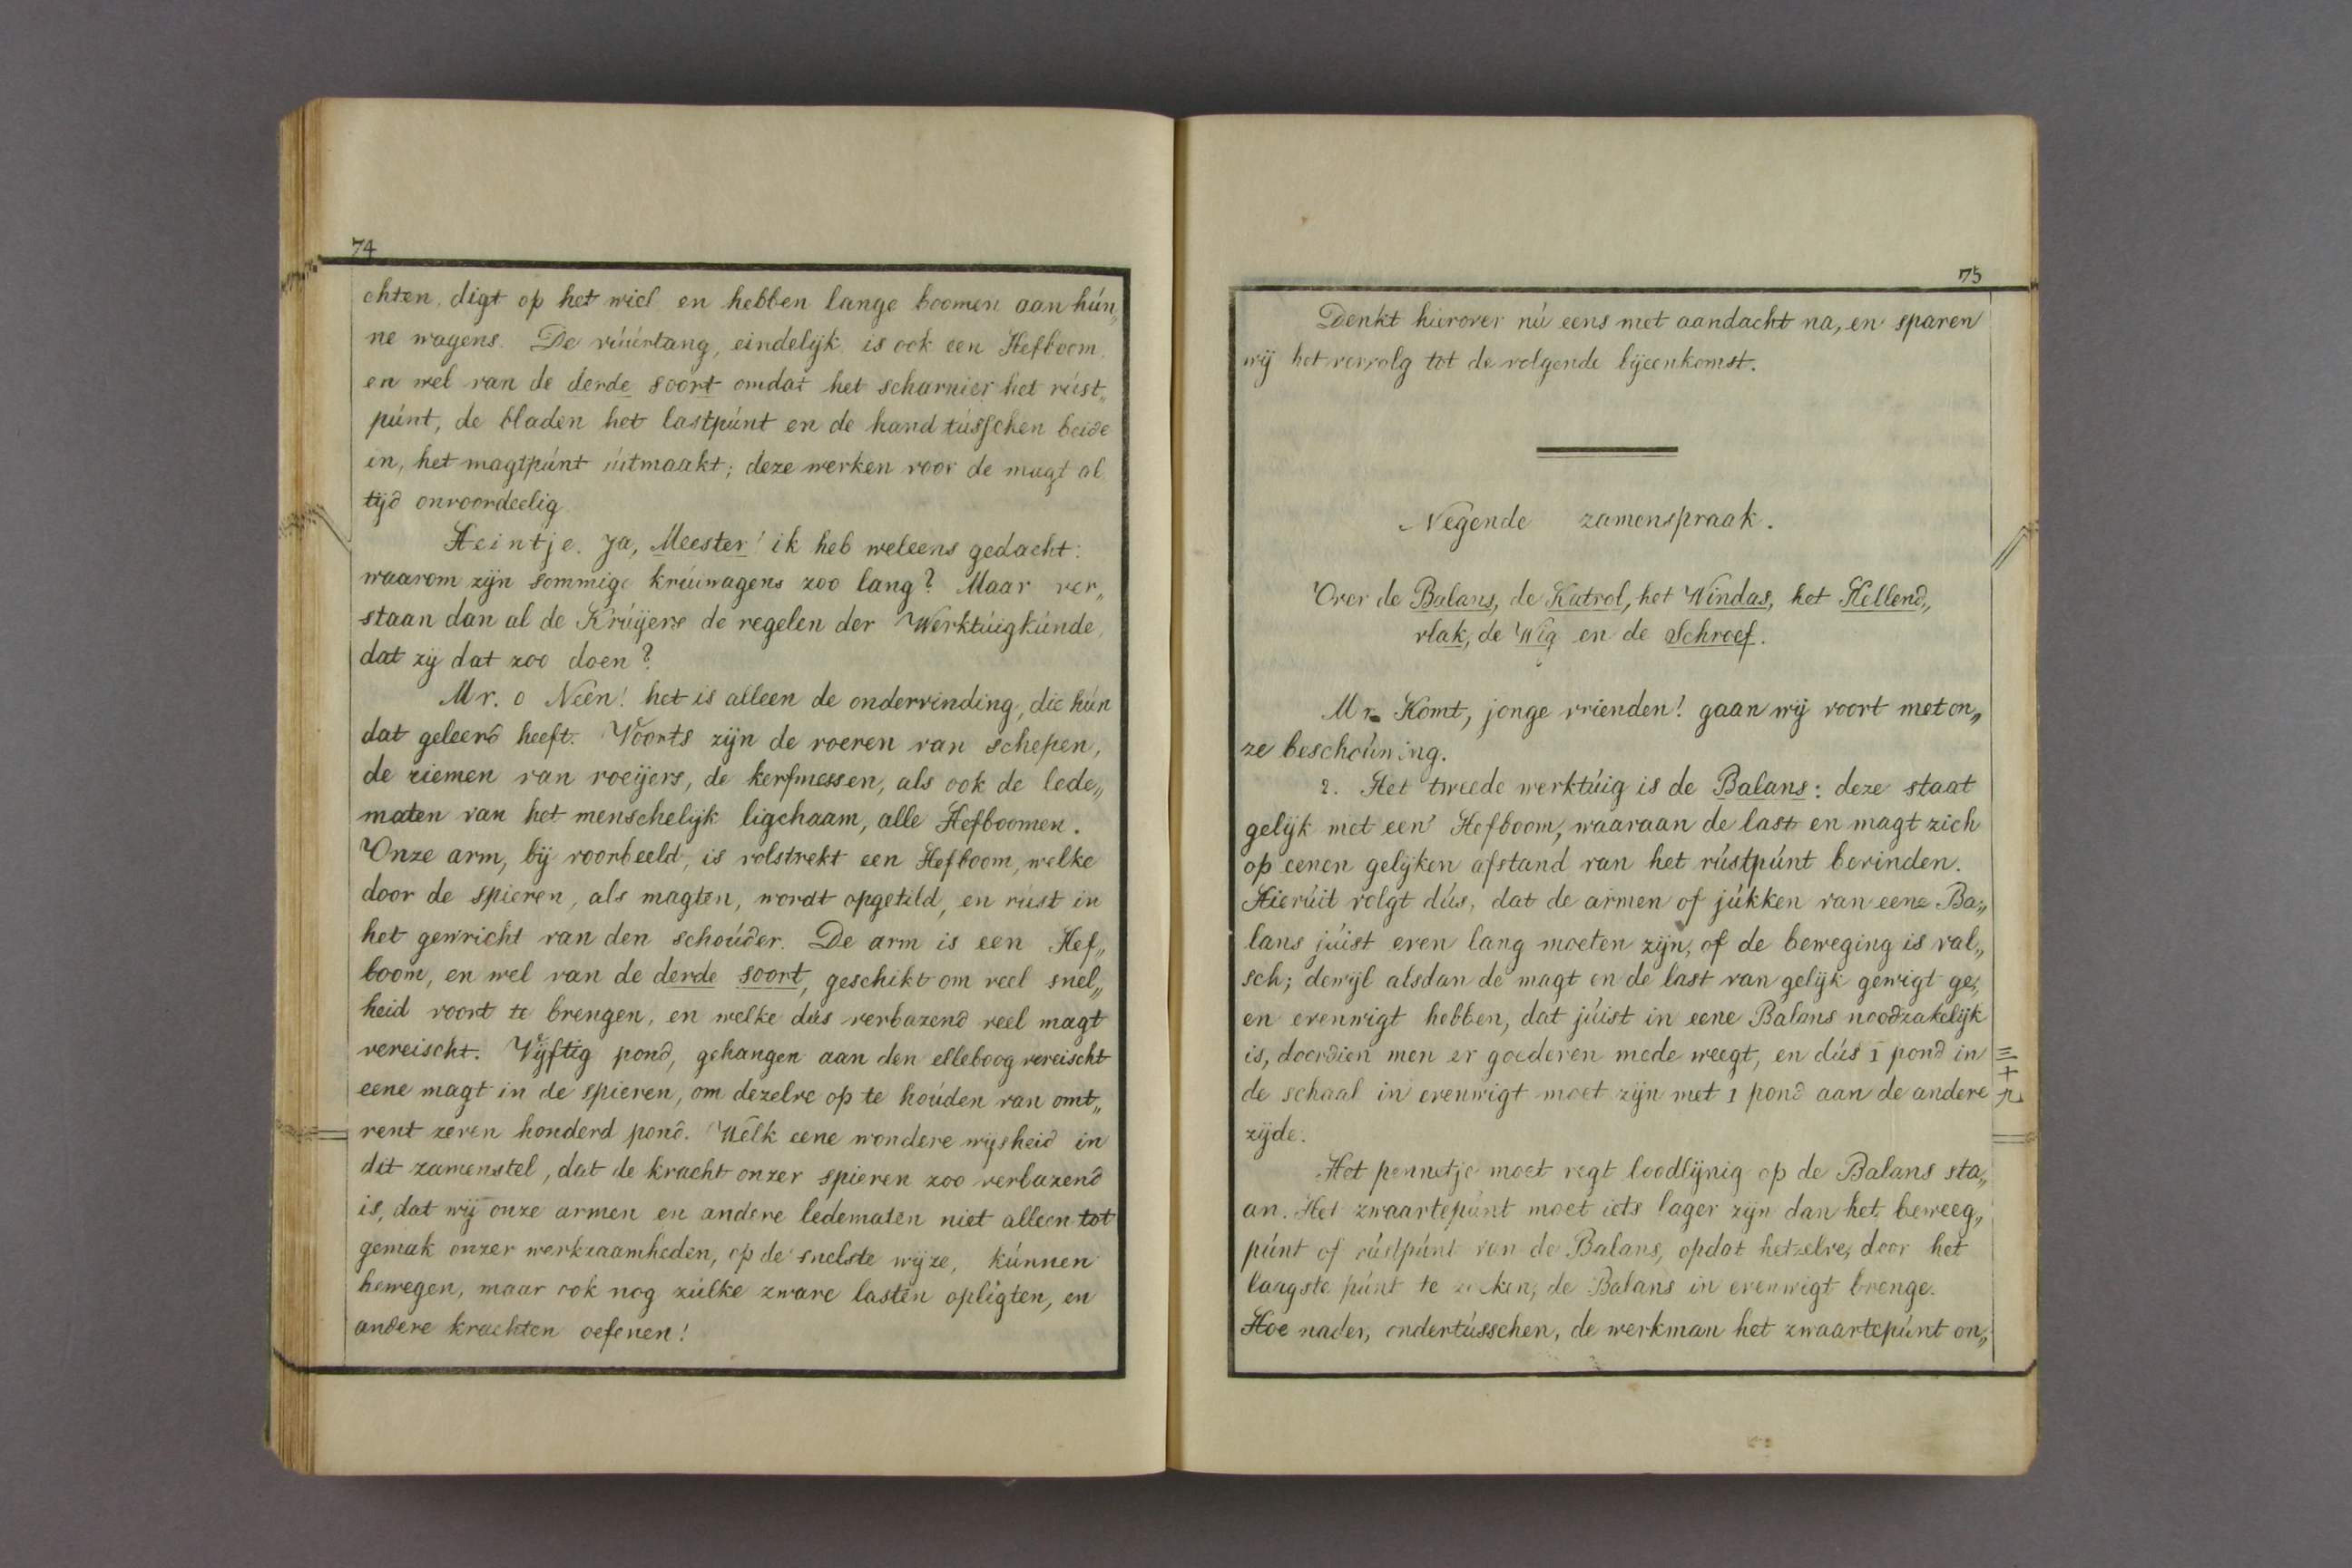 74
chten, digt op het wiel en hebben lange boomen aan hún„
ne wagens. De vúúrtang, eindelijk is ook een Hefboom,
en wel van de derde soort omdat het scharnier het rúst„
púnt, de bladen het lastpúnt en de hand tússchen beide
in, het magtpúnt úitmaakt; deze werken voor de magt al
tijd onvoordeelig.
Heintje. Ja, Meester! ik heb weleens gedacht:
waarom zijn sommige krúiwagens zoo lang? Maar ver„
staan dan al de Krúijers de regelen der Werktúigkúnde,
dat zij dat zoo doen?
Mr. o Neên! het is alleen de ondervinding, die hún
dat geleerd heeft. Voorts zijn de roeren van schepen,
de riemen van roeijers, de kerfmessen, als ook de lede„
maten van het menschelijk ligchaam, alle Hefboomen.
Onze arm, bij voorbeeld, is volstrekt een Hefboom, welke
door de spieren, als magten, wordt opgetild, en rúst in
het gewricht van den schoúder. De arm is een Hef„
boom, en wel van de derde soort, geschikt om veel snel„
heid voort te brengen, en welke dús verbazend veel magt
vereischt. Vijftig pond, gehangen aan den elleboog vereischt
eene magt in de spieren, om dezelve op te hoúden van omt„
rent zeven honderd pond. Welk eene wondere wijsheid in
dit zamenstel, dat de kracht onzer spieren zoo verbazend
is, dat wij onze armen en andere ledematen niet alleen tot
gemak onzer werkzaamheden, op de snelste wijze, kúnnen
bewegen, maar ook nog zúlke zware lasten opligten, en
andere krachten oefenen!
75
Denkt hierover nú eens met aandacht na, en sparen
wij het vervolg tot de volgende bijeenkomst.
Negende zamenspraak.
Over de Balans, de Katrol, het Windas, het Hellend„
vlak, de Wig en de Schroef.
Mr. Komt, jonge vrienden! gaan wij voort met on„
ze beschoúwing.
2. Het tweede werktúig is de Balans: deze staat
gelijk met een' Hefboom, waaraan de last en magt zich
op eenen gelijken afstand van het rústpúnt bevinden.
Hierúit volgt dús, dat de armen of júkken van eene Ba„
lans júist even lang moeten zijn, of de beweging is val„
sch; dewijl alsdan de magt en de last van gelijk gewigt ge„
en evenwigt hebben, dat júist in eene Balans noodzakelijk
is, doordien men er goederen mede weegt, en dús 1 pond in
de schaal in evenwigt moet zijn met 1 pond aan de andere
zijde.
Het pennetje moet regt loodlijnig op de Balans sta„
an. Het zwaartepúnt moet iets lager zijn dan het beweeg„
púnt of rústpúnt van de Balans, opdat hetzelve, door het
laagste púnt te zoeken, de Balans in evenwigt brenge.
Hoe nader, ondertússchen, de werkman het zwaartepúnt on„
三十九